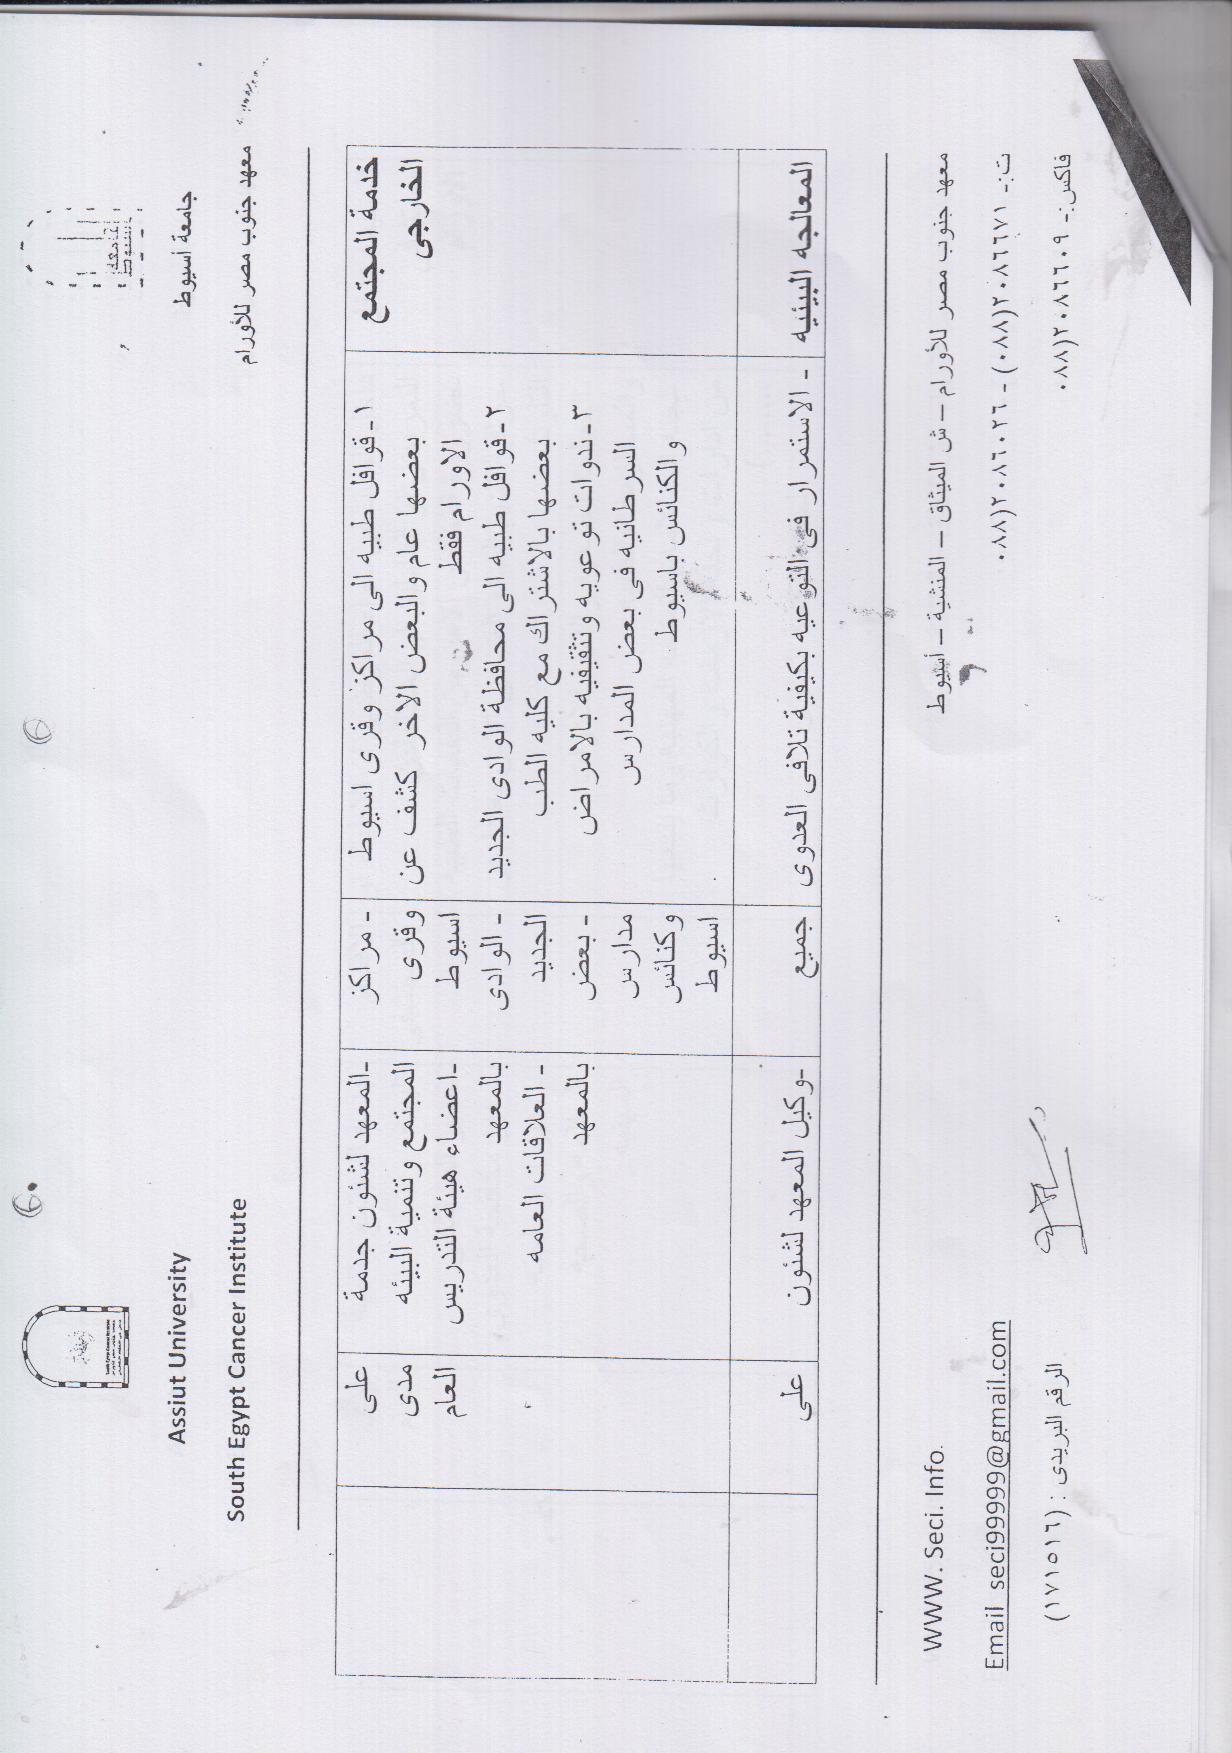 جامعة أسيوط
معهد جنوب مصر للأورام
Assiut University
South Egypt Cancer Institute
خدمة المجتمع
الخارجى
١- قوافل طبيه الى مراكز وقرى اسيوط
بعضها عام والبعض الاخر كشف عن
الاورام فقط
٢- قوافل طبيه الى محافظة الوادى الجديد
بعضها بالاشتراك مع كليه الطب
٣- ندوات توعويه وتثقيفيه بالامراض
السرطانيه فى بعض المدارس
والكنائس باسيوط
- مراكز
وقرى
اسيوط
- الوادى
الجديد
- بعض
مدارس
وكنائس
اسيوط
-المعهد لشئون جدمة
المجتمع وتنمية البيئه
-اعضاء هيئة التدريس
بالمعهد
- العلاقات العامه
بالمعهد
على
مدى
العام
المعالجه البيئيه
- الاستمرار فى التوعيه بكيفية تلافى العدوى
جميع
-وكيل المعهد لشئون
على
معهد جنوب مصر للأورام – ش الميثاق – المنشية – أسيوط
ت:- ٢٠٨٦٦٧١(٠٨٨) - ٢٠٨٦٠٢٦(٠٨٨
فاكس:- ٢٠٨٦٦٠٩(٠٨٨
WWW. Seci. Info.
Email seci99999@gmail.com
الرقم البريدى : (١٧١٥١٦)